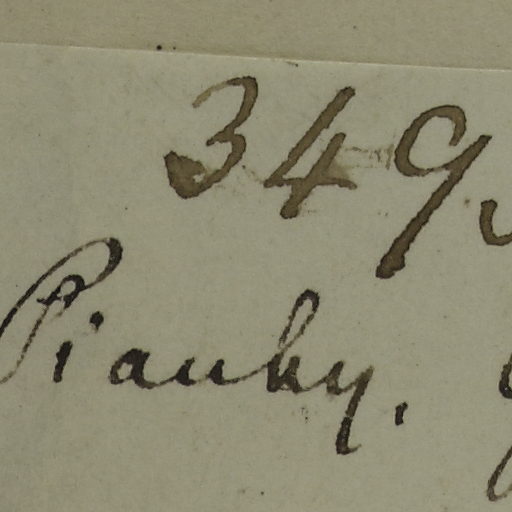 349
Piauhy.